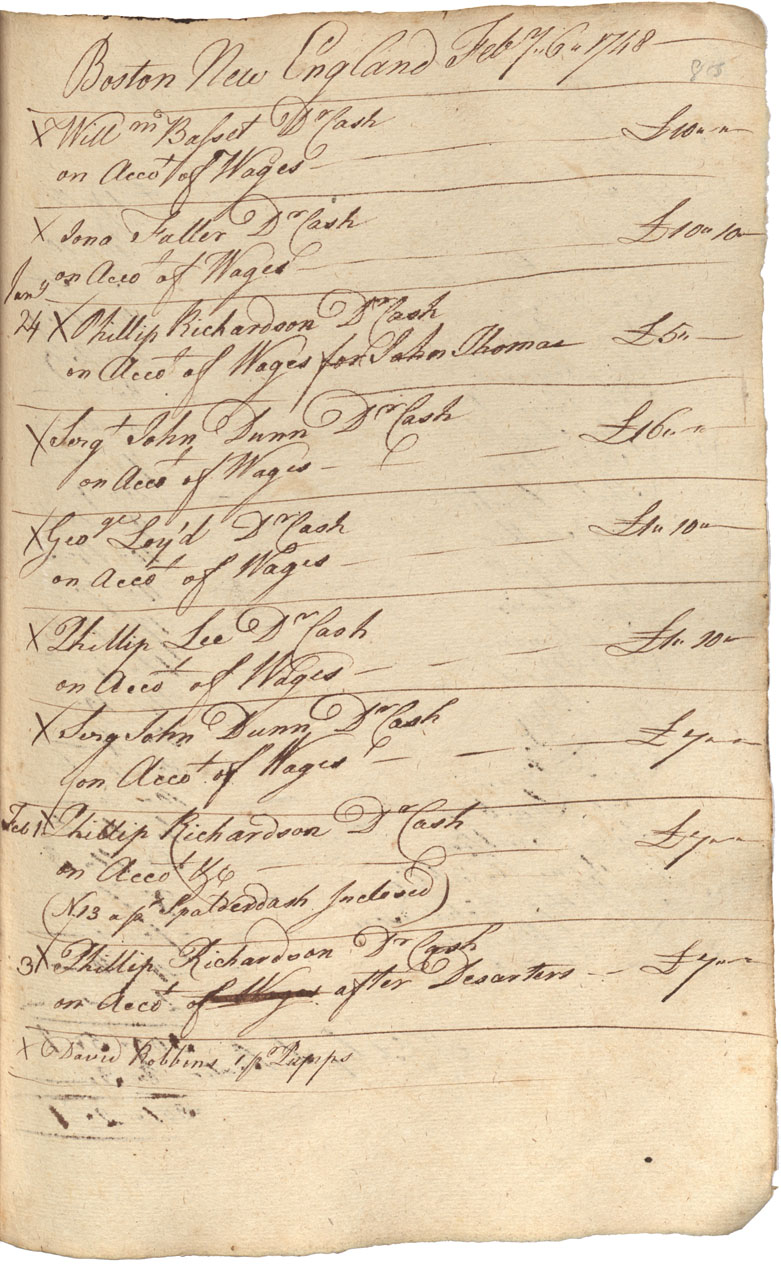 Boston New England Feb y 6 1748
85
X Will m Basset Dr Cash £10
on Accot of Wages
X Jona Fuller Dr Cash £10 10
on Accot of Wages
Jany
24 X Phillip Richardson Dr Cash £5
on Accot of Wages for John Thomas
X Sergt John Dunn Dr Cash £16
on Accot of Wages
X Geo ge Loy'd Dr Cash £1 10
on Accot of Wages
X Phillip Lee Dr Cash £1 10
on Accot of Wages
X Serg John Dunn Dr Cash £7
on Accot of Wages
Feb 1 X Phillip Richardson Dr Cash £7
on Accot &c
(N13 a pr Spatderdash Inclosed)
3 X Phillip Richardson Dr Cash
on Accot of Wages after Desarters £7
X David Robbins 1 pr Pumps